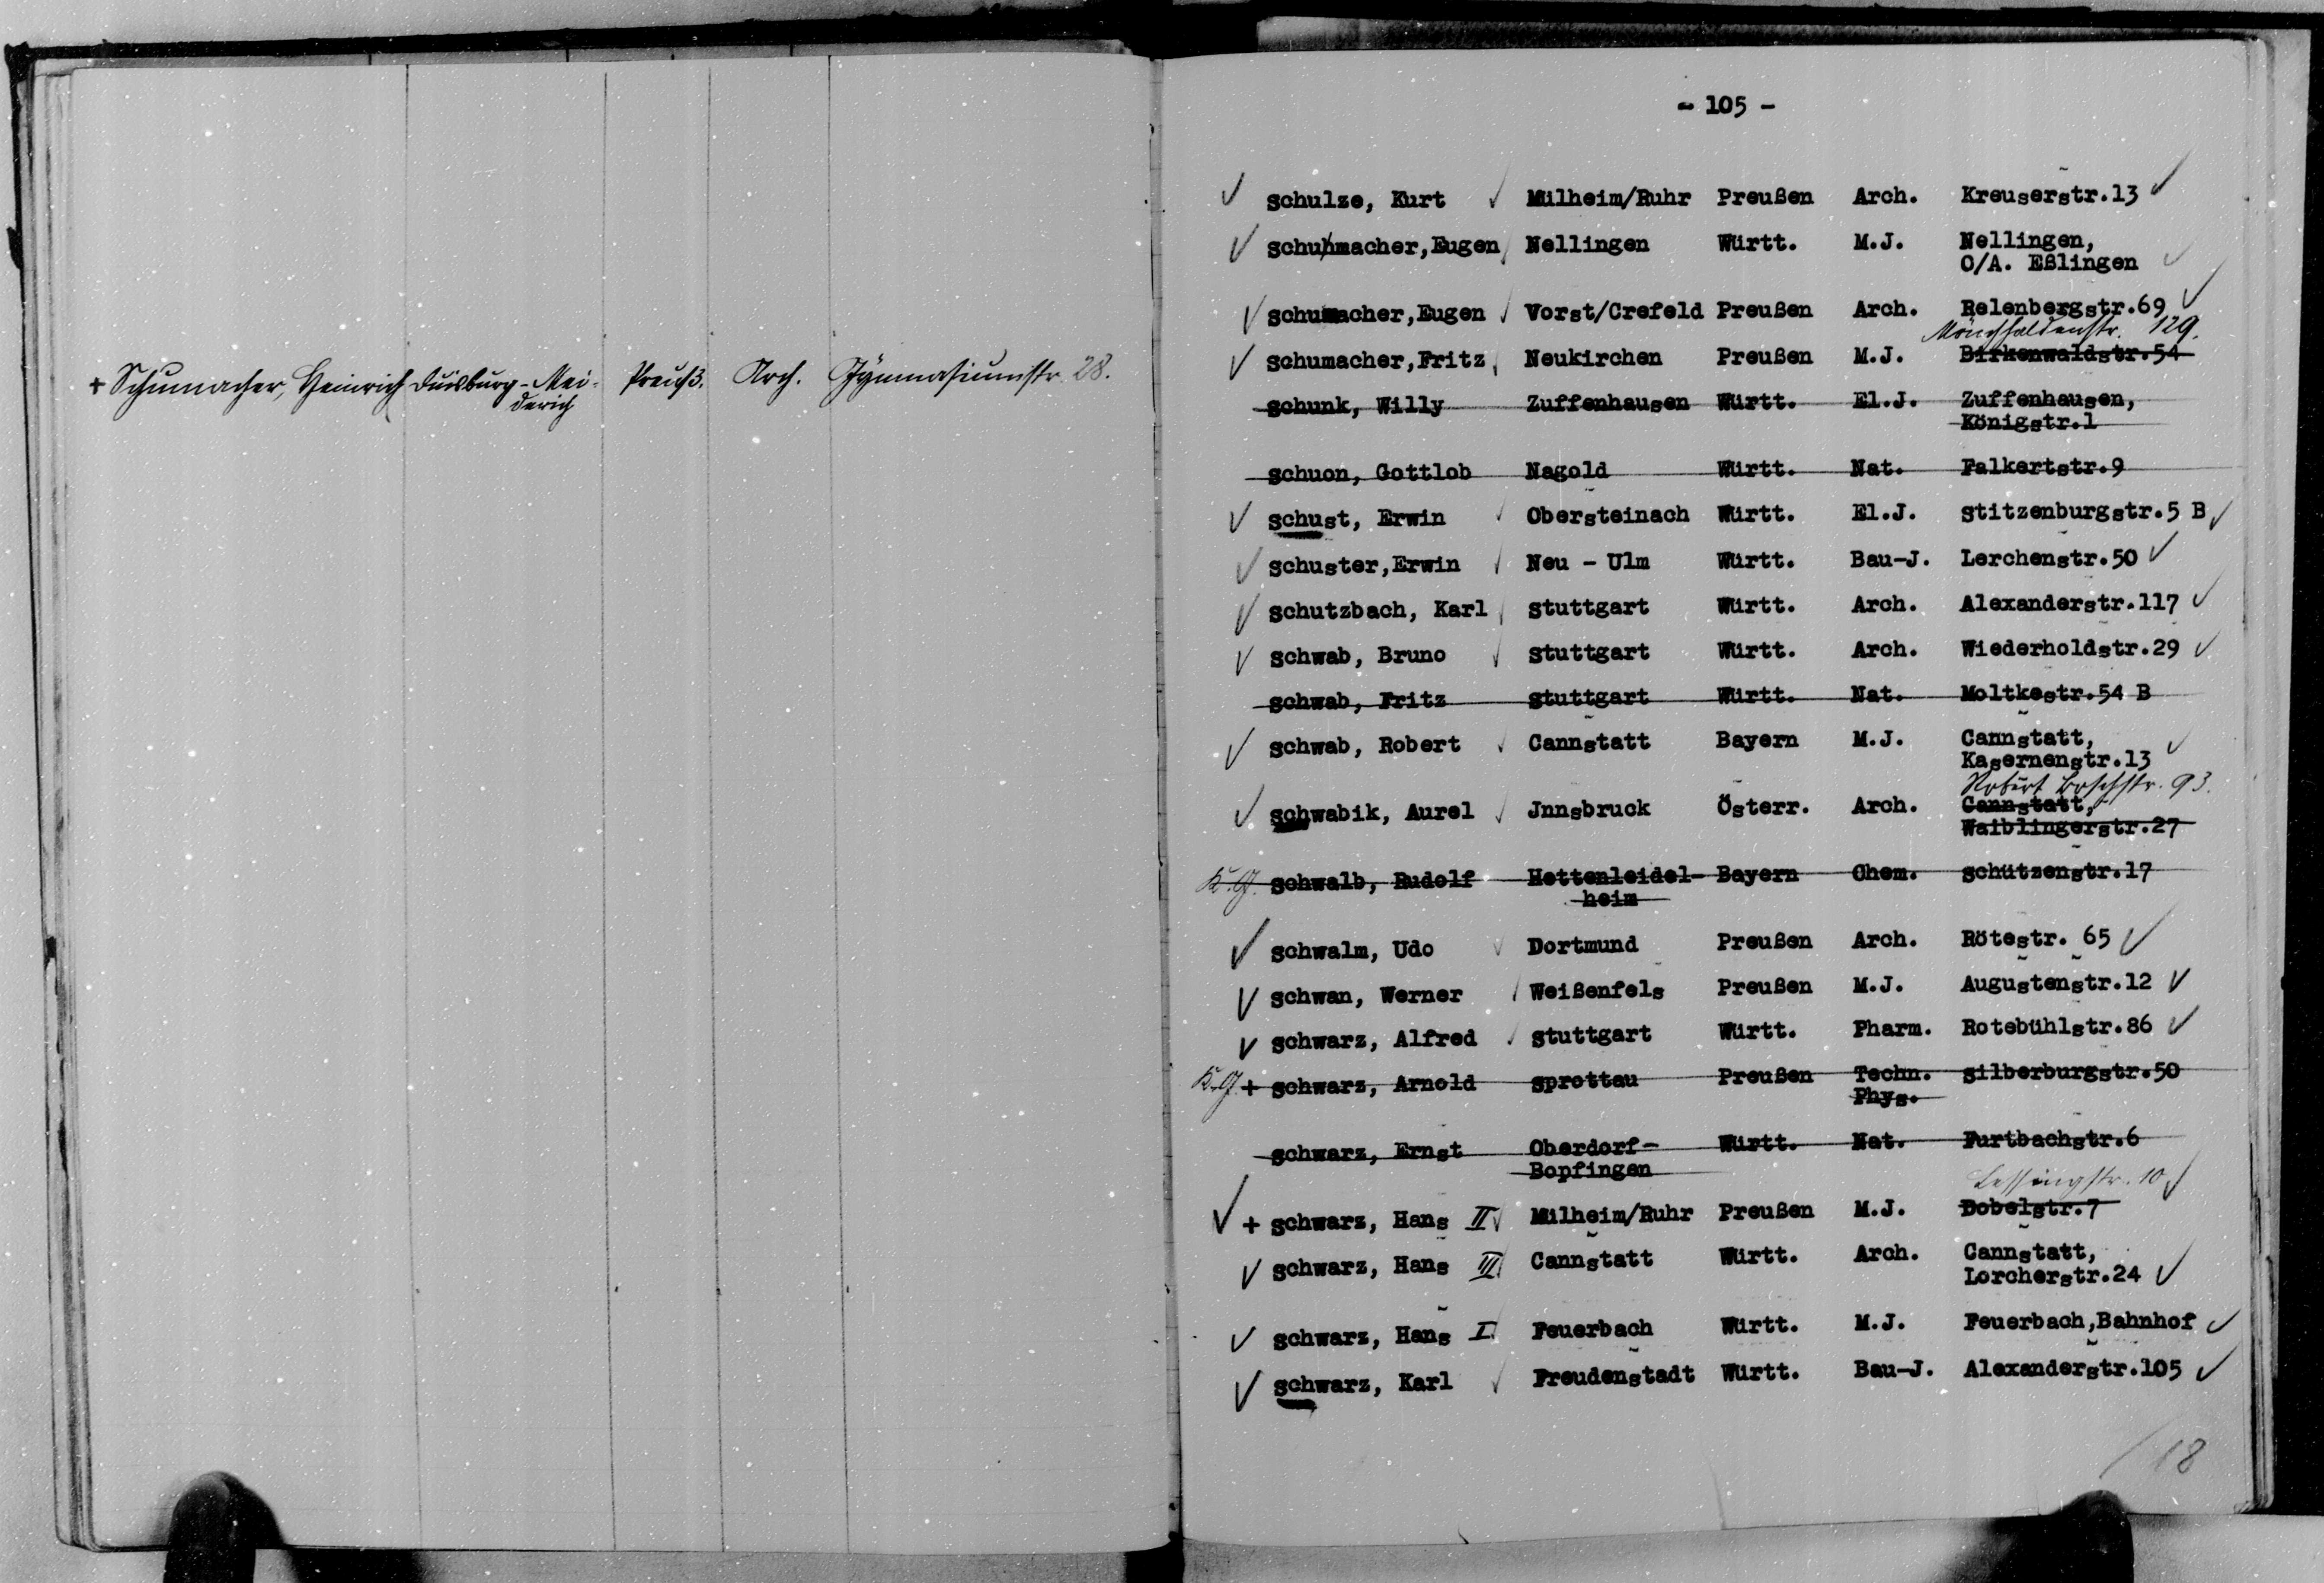 + Schumacher, Heinrich Duisburg-Mei- Preuß. Arch. Gymnasiumstr. 28.
derich
- 105 -
Schulze, Kurt Mülheim/Ruhr Preußen Arch. Kreuserstr.13
Schuhmacher,Eugen Nellingen Württ. M.J. Nellingen,
O/A. Eßlingen
Schumacher,Eugen Vorst/Crefeld Preußen Arch. Relenbergstr.69
Mönchhaldenstr. 129.
Schumacher,Fritz Neukirchen Preußen M.J. Birkenwaldstr.54
Schunk, Willy Zuffenhausen Württ. El.J. Zuffenhausen,
Königstr.1
Schuon, Gottlob Nagold Württ. Nat. Falkertstr.9
Schust, Erwin Obersteinach Württ. El.J. Stitzenburgstr.5 B
Schuster,Erwin Neu - Ulm Württ. Bau-J. Lerchenstr.50
Schutzbach, Karl Stuttgart Württ. Arch. Alexanderstr.117
Schwab, Bruno Stuttgart Württ. Arch. Wiederholdstr.29
Schwab, Fritz Stuttgart Württ. Nat. Moltkestr.54 B
Schwab, Robert Cannstatt Bayern M.J. Cannstatt,
Kasernenstr.13
Robert Boschstr. 93.
Schwabik, Aurel Jnnsbruck Österr. Arch. Cannstatt,
Waiblingerstr.27
K.G. Schwalb, Rudolf Hettenleidel- Bayern Chem. Schützenstr.17
heim
Schwalm, Udo Dortmund Preußen Arch. Rötestr. 65
Schwan, Werner Weißenfels Preußen M.J. Augustenstr.12
Schwarz, Alfred Stuttgart Württ. Pharm. Rotebühlstr.86
K.G. + Schwarz, Arnold Sprottau Preußen Techn. Silberburgstr.50
Phys.
Schwarz, Ernst Oberdorf- Württ. Nat. Furtbachstr.6
Bopfingen
Lessingstr. 10
+ Schwarz, Hans II Mülheim/Ruhr Preußen M.J. Dobelstr.7
Schwarz, Hans III Cannstatt Württ. Arch. Cannstatt,
Lorcherstr.24
Schwarz, Hans I Feuerbach Württ. M.J. Feuerbach,Bahnhof
Schwarz, Karl Freudenstadt Württ. Bau-J. Alexanderstr.105
/ 18